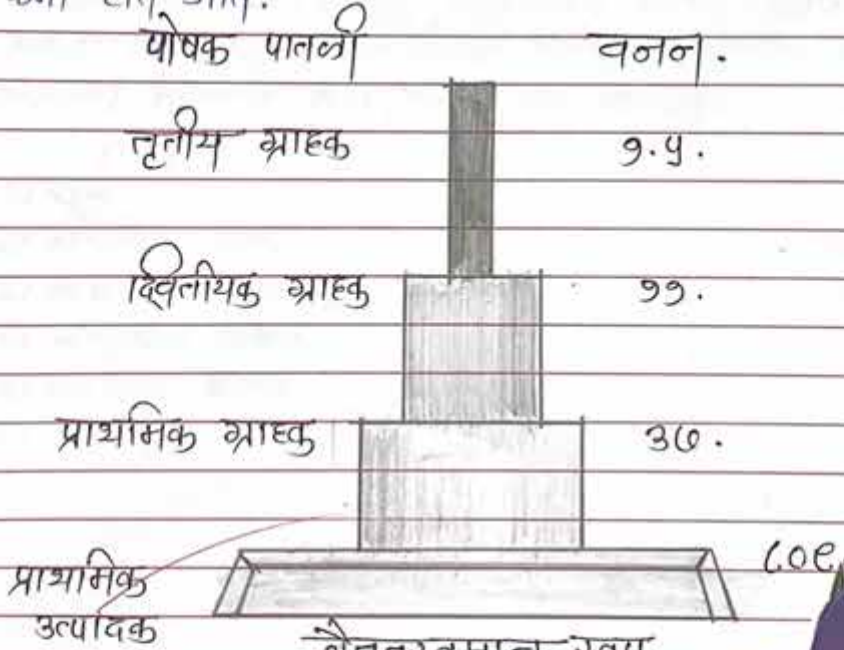 पोषक पातळी वजन.
तृतीय ग्राहक १.५.
द्वितीयक ग्राहक ११.
प्राथमिक ग्राहक ३७.
प्राथमिक ८०९
उत्पादक